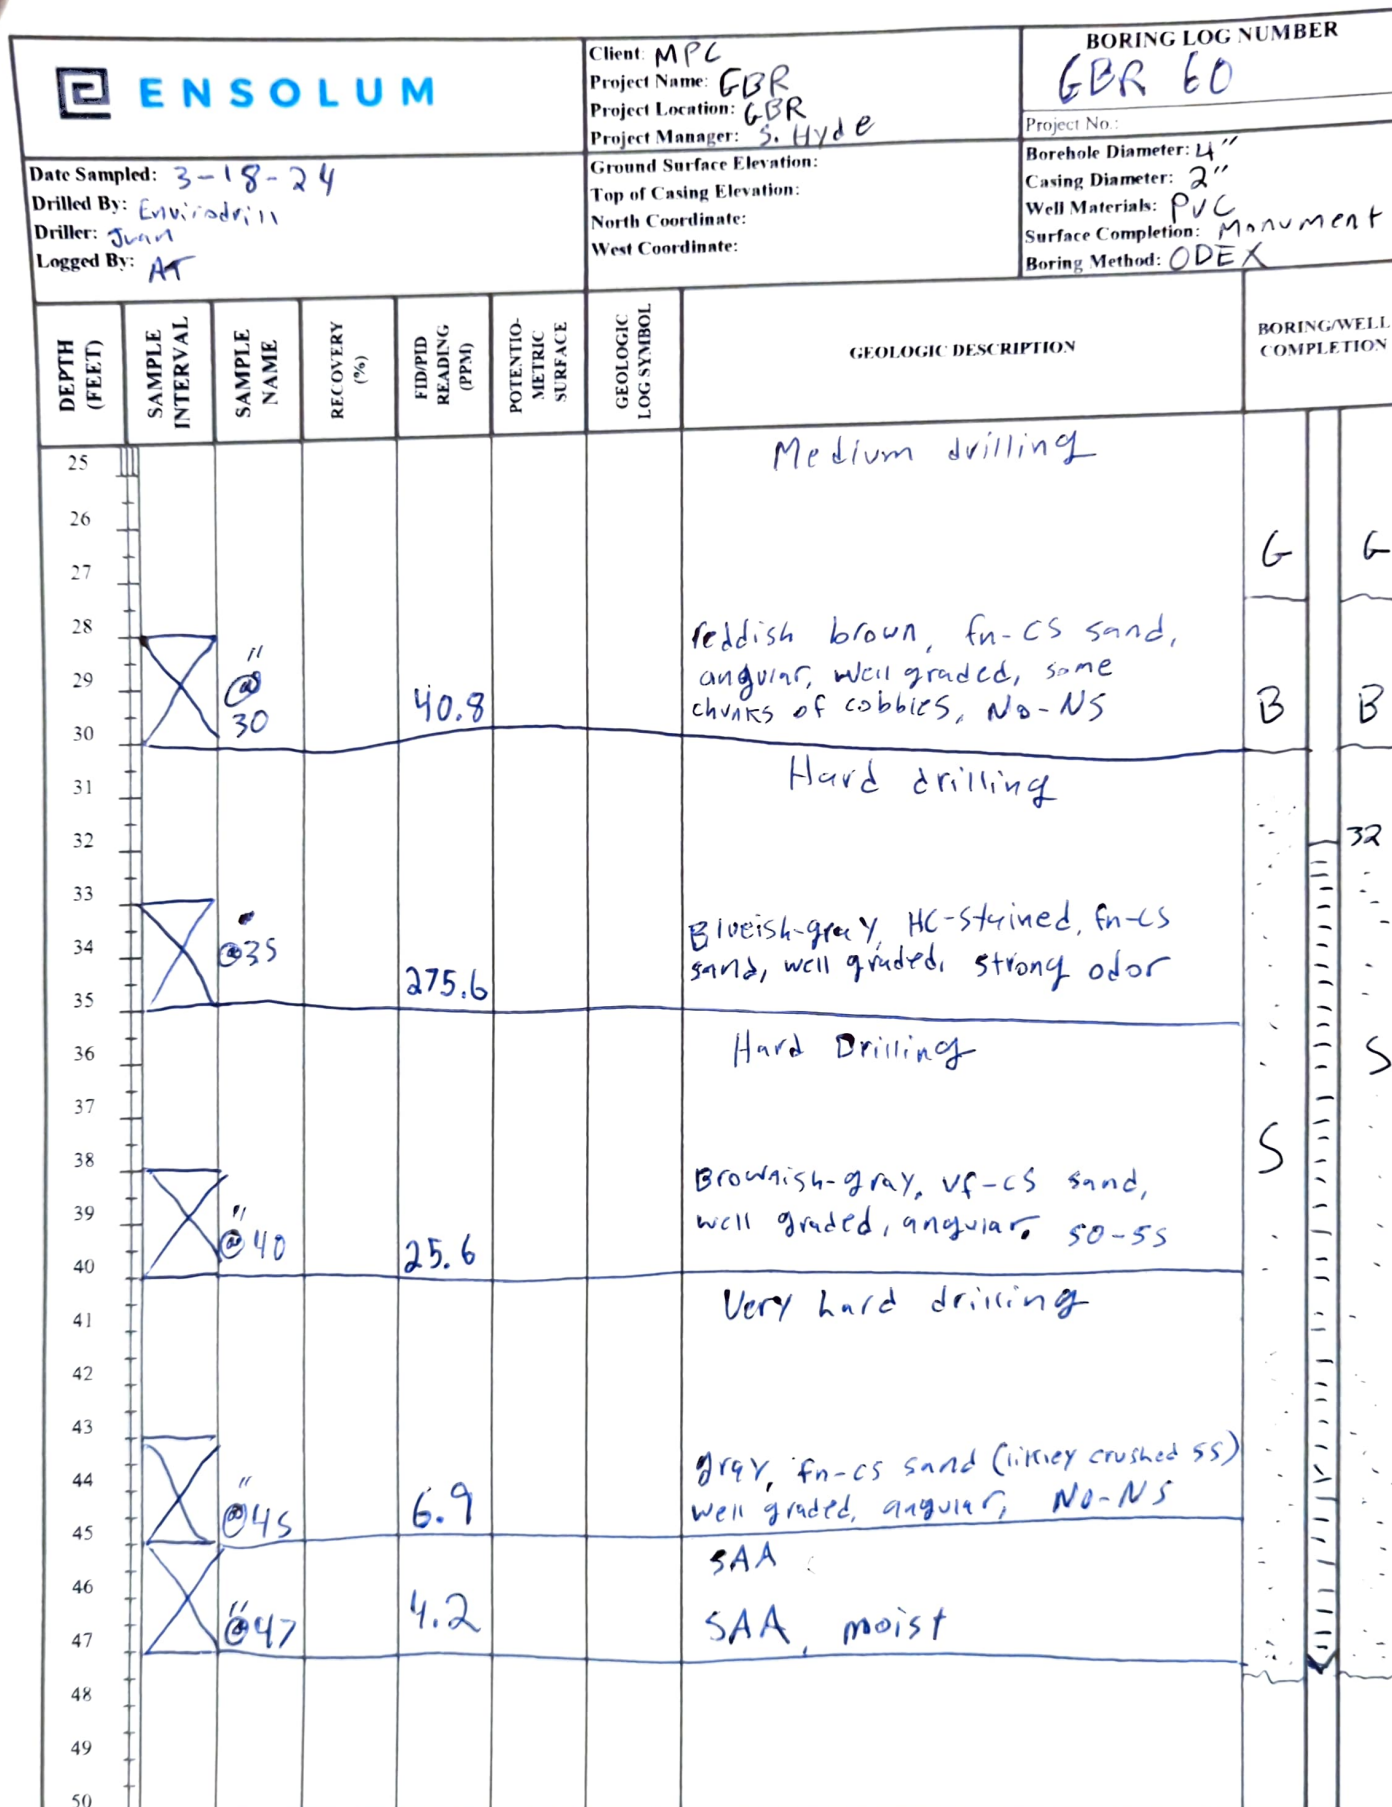 ENSOLUM
Client: MPC
Project Name: GBR
Project Location: GBR
Project Manager: S. Hyde
BORING LOG NUMBER
GBR 60
Project No.:
Date Sampled: 3-18-24
Drilled By: Envirodrill
Driller: Juan
Logged By: AT
Ground Surface Elevation:
Top of Casing Elevation:
North Coordinate:
West Coordinate:
Borehole Diameter: 4"
Casing Diameter: 2"
Well Materials: PVC
Surface Completion: Monument
Boring Method: ODEX
DEPTH
(FEET)
SAMPLE
INTERVAL
SAMPLE
NAME
RECOVERY
(%)
FID/PID
READING
(PPM)
POTENTIO-
METRIC
SURFACE
GEOLOGIC
LOG SYMBOL
GEOLOGIC DESCRIPTION
BORING/WELL
COMPLETION
25
Medium drilling
26
G G
27
28
reddish brown, fn-cs sand,
29
" @
30
40.8
angular, well graded, some
chunks of cobbles, No-NS
B B
30
Hard drilling
31
32
32
33
34
@35
275.6
Blueish-gray, HC-stained, fn-cs
sand, well graded, strong odor
35
36
Hard Drilling
S
37
38
S
39
" @40
25.6
Brownish-gray, vf-cs sand,
well graded, angular, SO-SS
40
Very hard drilling
41
42
43
44
" @45
6.9
gray, fn-cs sand (likley crushed SS)
well graded, angular, NO-NS
45
SAA
46
" @47
4.2
SAA, moist
47
48
49
50